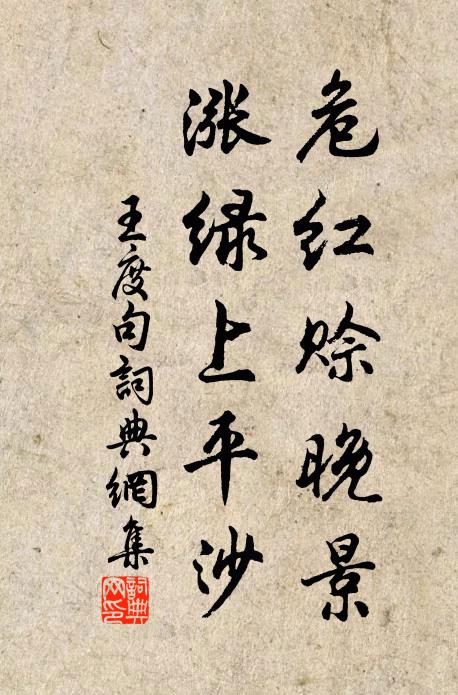 危红赊晚景
涨绿上平沙
王度句詞典網集
詞典网印